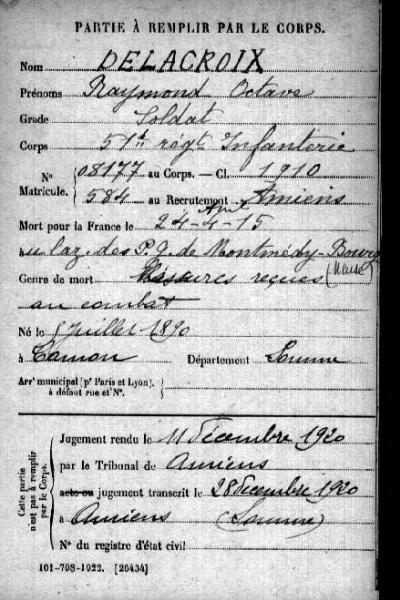 PARTIE À REMPLIR PAR LE CORPS.
Nom DELACROIX
Prénoms Raymond Octave
Grade Soldat
Corps 51e regt Infanterie
N° Matricule. 08177 au Corps. — Cl. 1910
584 au Recrutement Amiens
Mort pour la France le 24-4-15
Avr
au laz. des P. G. de Montmédy-Bourg
(Meuse)
Genre de mort Blessures reçues
au combat
Né le 5 Juillet 1890
à Camon Département Somme
Arrt municipal (pr Paris et Lyon).
à défaut rue et N°.
Cette partie n'est pas à remplir par le Corps.
Jugement rendu le 11 décembre 1920
par le Tribunal de Amiens
acte ou jugement transcrit le 28 décembre 1920
à Amiens (Somme)
N° du registre d'état civil
101-708-1922. [26434]